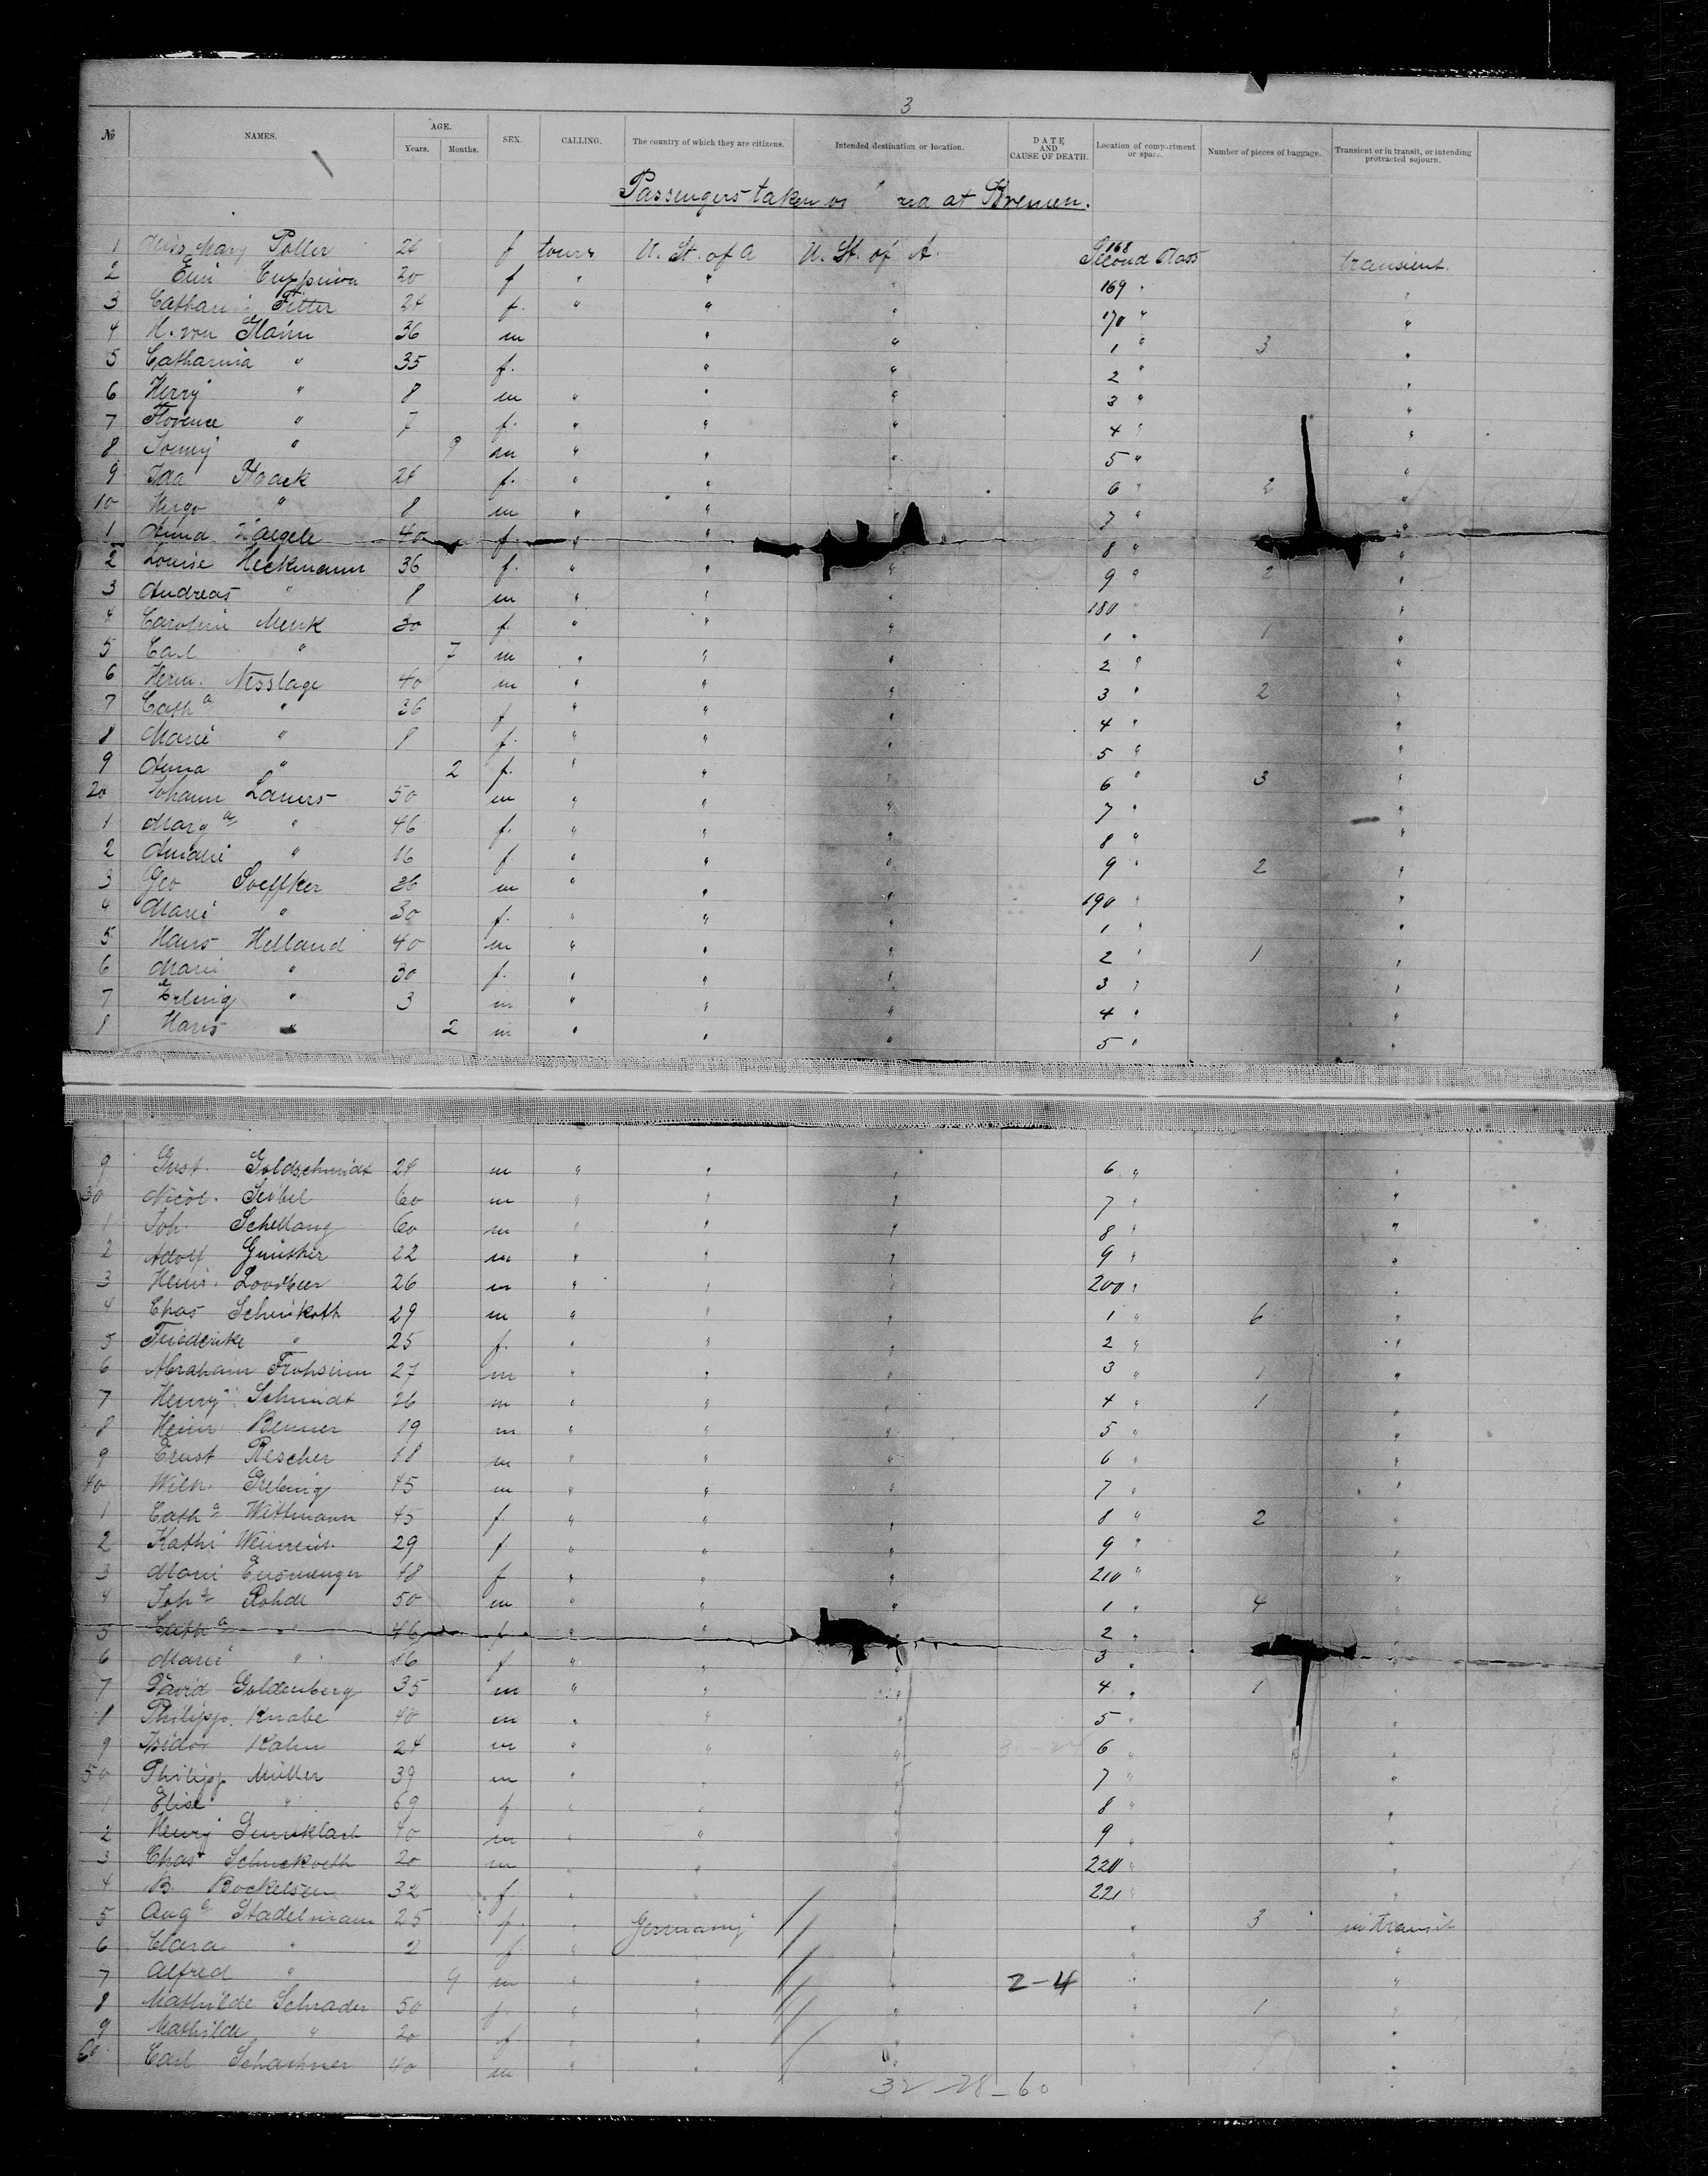 3
№ NAMES. AGE. Years. Months. SEX. CALLING. The country of which they are citizens. Intended destination or location. DATE AND CAUSE OF DEATH. Location of compartment or space. Number of pieces of baggage. Transient or in transit, or intending protracted sojourn.
Passengers taken on at Bremen.
1 Miss Mary f tours U. St. of A U. St. of A. 168 Second Class transient.
2 20 f " " " 169 "
3 24 f. " " " 170 " "
4 H. von 36 m " " 1 " 3 "
5 Catharina " 35 f. " " 2 " "
6 Henry " 8 m " " " 3 " "
7 Florence " 7 f. " " " 4 " "
8 " 9 m " " " 5 "
9 Ida Haack f. " " " 6 " 2 "
10 Hugo " 8 m " " 7 " "
1 Anna 40 f " " 8 " "
2 Louise Heckmann 36 f. " " " 9 " 2 "
3 Andreas " 8 m " " 180 " "
4 Caroline Menk 30 f. " " " 1 " 1 "
5 Carl " 7 m " " " 2 " "
6 Herm. Nesslage 40 m " " " 3 " 2 "
7 Cath a " 36 f " " " 4 " "
8 Marie " 8 f. " " " 5 " "
9 Anna " 2 f. " " " 6 " 3 "
20 Johann Lauers 50 m " " " 7 " "
1 Marg a " 46 f. " " " 8 " "
2 Amalie " 16 f " " " 9 " 2 "
3 Geo Soeffker 36 m " " " 190 " "
4 Marie " 30 f. " " " 1 " "
5 Hans Helland 40 m " " " 2 " 1 "
6 Marie " 30 f. " " " 3 " "
7 Erling " 3 m " " " 4 " "
8 Hans " 2 m " " " 5 " "
9 Gust. Goldschmidt 24 m " " " 6 " "
30 Nicol. Seibel 60 m " " " 7 " "
1 Joh. Schellang 60 m " " " 8 " "
2 Adolf Günther 22 m " " " 9 " "
3 Heinr. 26 m " " " 200 " "
4 Chas 29 m " " " 1 " 6 "
5 Friederike " 25 f. " " " 2 " "
6 Abraham Frohsinn 27 m " " " 3 " 1 "
7 Henry Schmidt 26 m " " " 4 " 1 "
8 Heinr Benner 19 m " " " 5 " "
9 Ernst Rescher 18 m " " " 6 " "
40 Wilh. Grebing 45 m " " " 7 " "
1 Cath a Wittmann 45 f " " " 8 " 2 "
2 Kathi 29 f " " " 9 " "
3 Marie Ensmenger 48 f " " " 210 " "
4 Joh s Rohde 50 m " " " 1 " 4 "
5 Cath a " 46 f " " " 2 " "
6 Marie " 16 f " " " 3 " "
7 David Goldenberg 35 m " " " 4 " 1 "
8 Philipp. Knabe 40 m " " " 5 " "
9 Isidor Kahn 24 m " " " 6 " "
50 Philipp Müller 39 m " " " 7 " "
1 Elise " 69 f " " " 8 " "
2 Henry 40 m " " " 9 " "
3 Chas 20 m " " " 220 " "
4 B. Bockelsen 32 f " " " 221 " "
5 Aug e Stadelmann 25 f. " Germany " " 3 in transit
6 Clara " 2 f " " " " "
7 Alfred " 9 m " " " 2-4 " "
8 Mathilde Schrader 50 f " " " " 1 "
9 Mathilde " 20 f " " " " "
60 Carl Schachner 40 m " " " "
32 28-60